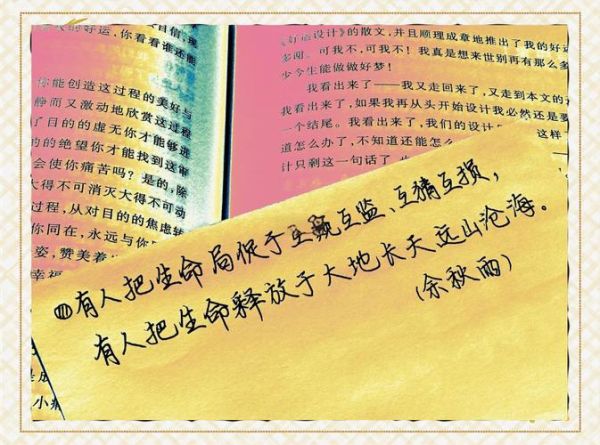 的好运，你看看谁还能
你能创造这过程的美好与
静而又激动地欣赏这过程
了目的的虚无你才能够进
的的绝望你才能找到这审
会使你痛苦吗？是的，除
大得不可消灭大得不可动
过程，从对目的的焦虑转
你同在，永远与你
姿，赞美着
幸福
《好运设计》的散文，并且顺理成章地推出了我的好运
多谢。可我不，可我不！我真是想来世别再有那么多
少今生能做做好梦！
我看出来了——我又走回来了，又走到本文的
我看出来了，如果我再从头开始设计我必然还是要
一个结尾。我看出来了，我们的设计 这样
道怎么办了，不知道还能怎么
计只剩这一句话了
有人把生命局促于互窥互监、互猜互损，
有人把生命释放于大地长天远山沧海。
（余秋雨）